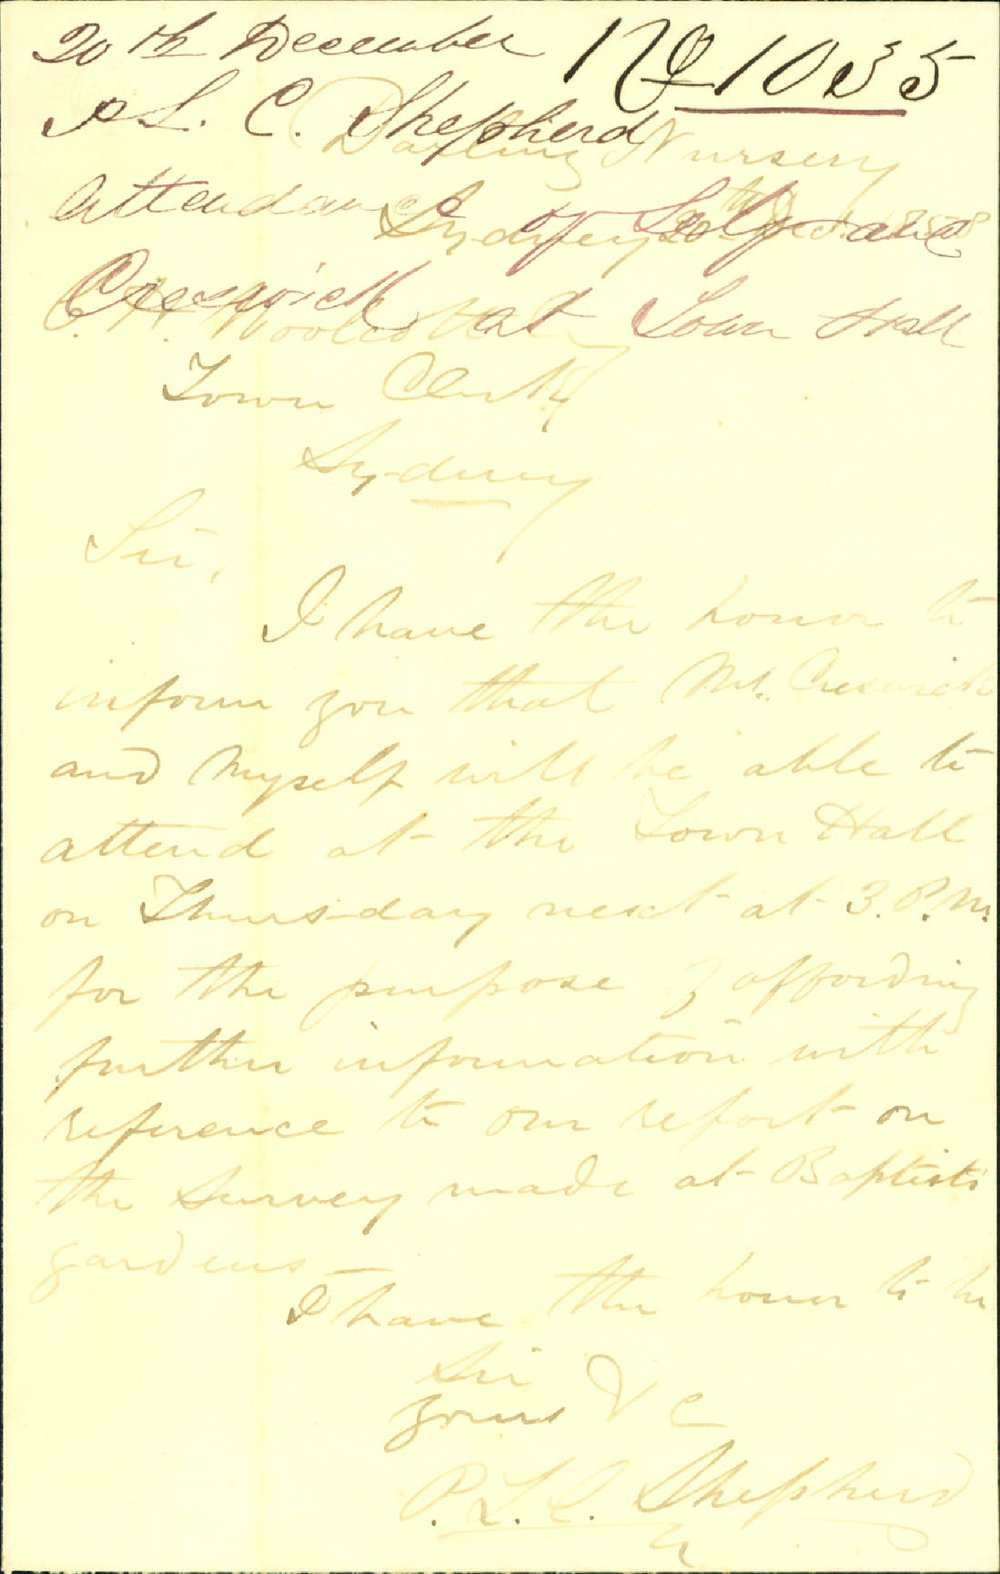 20th December No 1035
P L. C. Shepherd
Darling Nursery
Attendance of Self and
Sydney 20th Decr. 1858
Creswick at Town Hall
C. H. Woolcott
Town Clerk
Sydney
Sir,
I have the honor to
inform you that Mr. Creswick
and Myself will be able to
attend at the Town Hall
on Thursday next at 3. P.M.
for the purpose of affording
further information with
reference to our report on
the survey made at Baptists
gardens —
I have the honor to be
Sir
yours &c
P. L. C. Shepherd